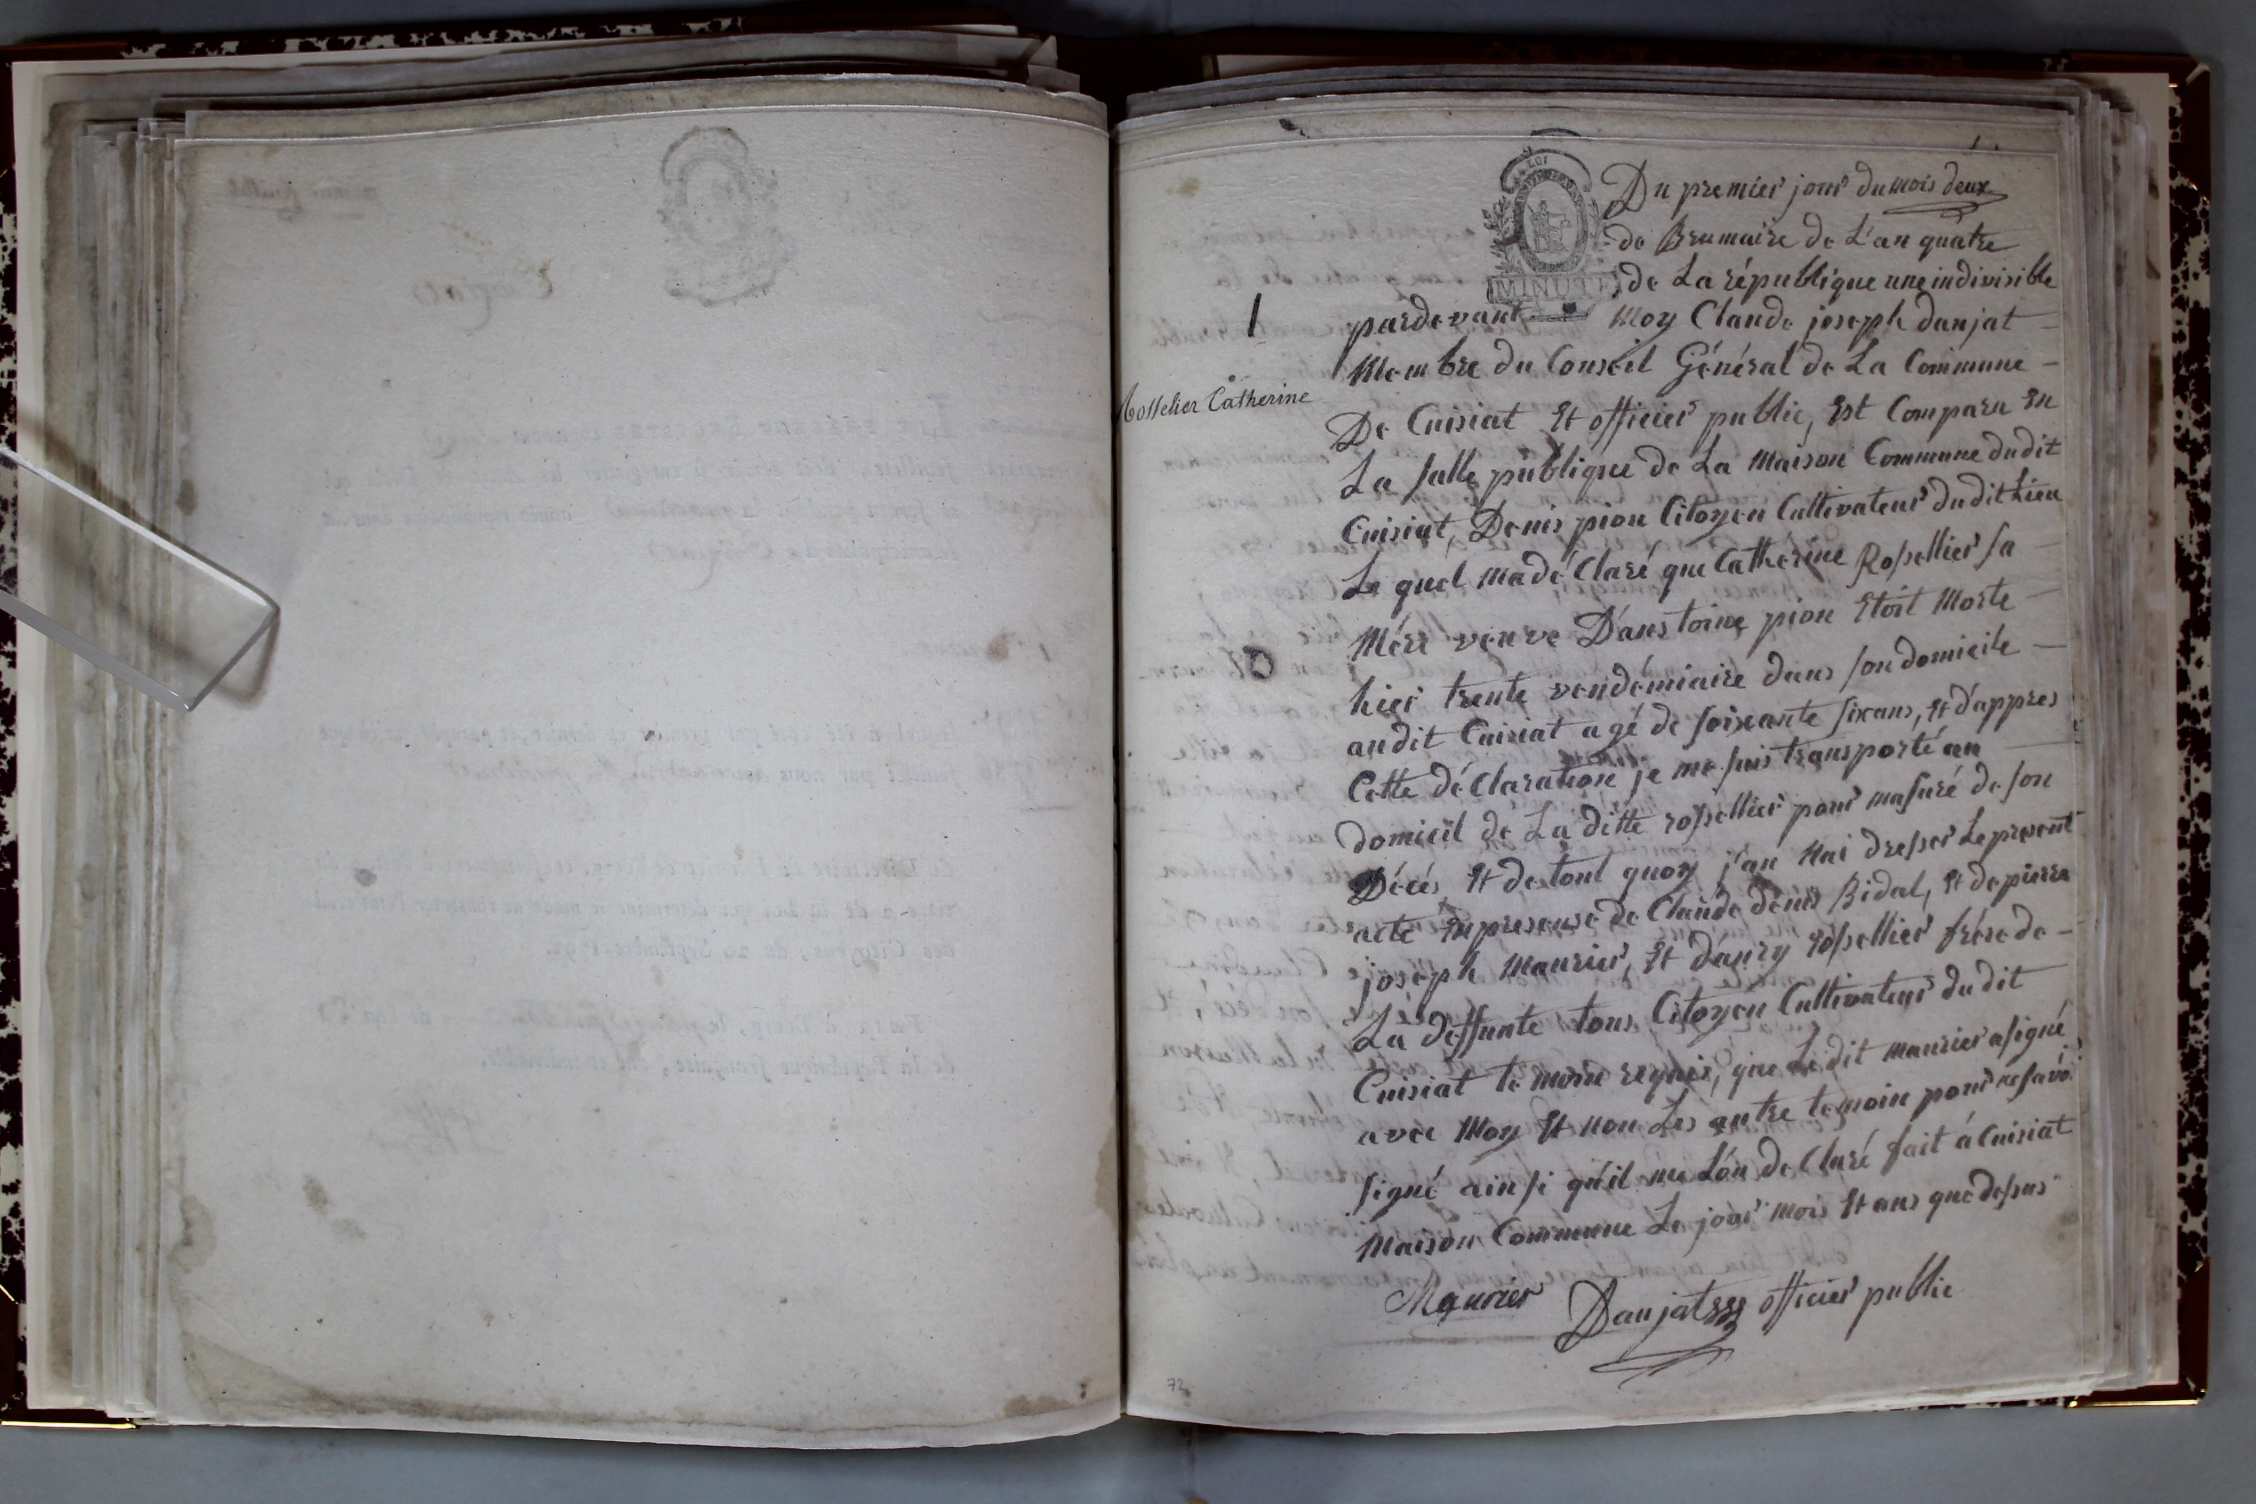 Du premier jour du mois deux
de Brumaire de L'an quatre
de La république une indivisible
LOI
MINUTE
1
pardevant Moy Claude joseph danjat
Membre du Conseil Général de La Commune
Rosselier Catherine
De Cuisiat Et officier public, Est Comparu En
La salle publique de La Maison Commune dudit
Cuisiat, Denis pion Citoyen Cultivateur dudit Lieu
Le quel ma dé Claré que Catherine Rossellier sa
Mére venve D'anstoine pion Etoit Morte
hier trente vendémiaire dans son domicile
audit Cuisiat agé de soixante six ans, Et d'appres
Cette déClaration je me suis transporté au
domicil de La ditte rossellier pour masuré de son
Décés, Et de tout quoy j'an Nai dresser Le present
acte En presense de Claude denis Bidal, Et de pierre
joseph Maurier, Et d'anry rossellier frére de
La deffunte tous Citoyen Cultivateur du dit
Cuisiat te moin requis, que Le dit maurier a signé
avec Moy Et non Les autre temoin pour ne savoi
signé ainsi qu'il me L'on de Claré fait á Cuisiat
Maison Commune Le jour mois Et ans que desus
Maurier Danjat officier public
73